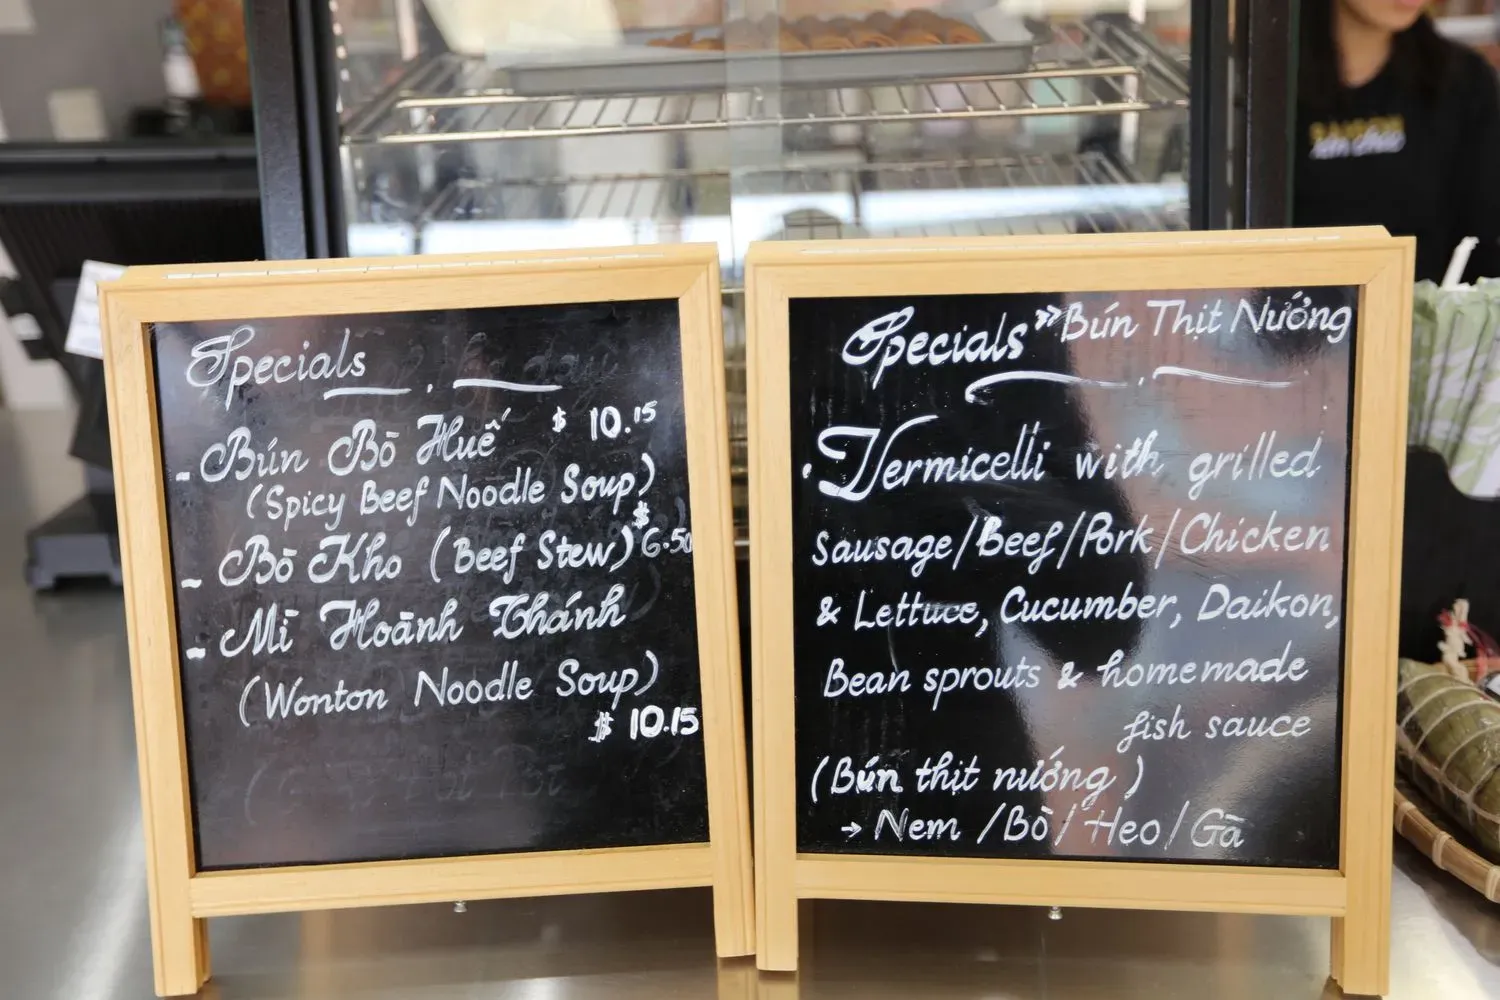 Specials
- Bún Bò Huế $ 10.15
(Spicy Beef Noodle Soup)
- Bò Kho (Beef Stew) $ 6.50
- Mì Hoành Thánh
(Wonton Noodle Soup)
$ 10.15
Specials » Bún Thịt Nướng
· Vermicelli with grilled
Sausage/Beef/Pork/Chicken
& Lettuce, Cucumber, Daikon,
Bean sprouts & homemade
fish sauce
(Bún thịt nướng)
→ Nem /Bò/ Heo/Gà